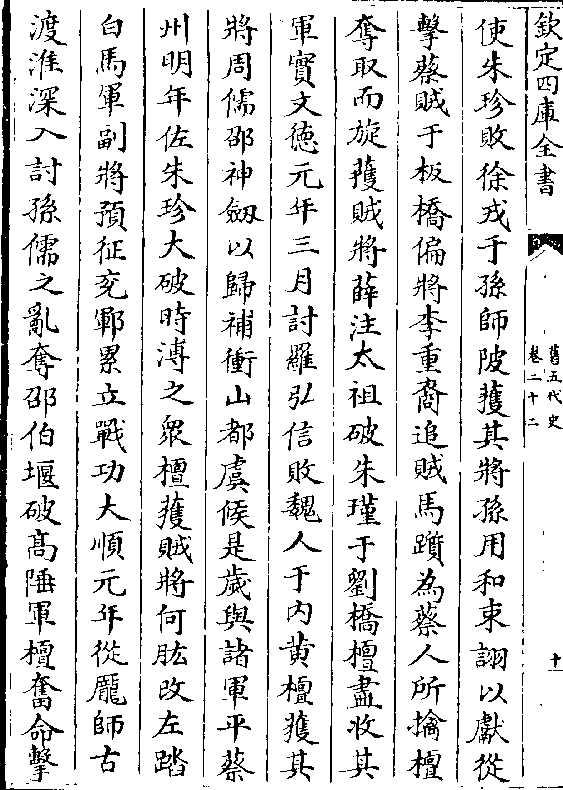 欽定四庫全書
舊五代史
卷二十二
十
使朱珍敗徐戎于孫師陂獲其將孫用和束詡以獻從
擊蔡賊于板橋偏將李重裔追賊馬躓為蔡人所擒檀
奪取而旋獲賊將薛注太祖破朱瑾于劉橋檀盡收其
軍實文徳元年三月討羅弘信敗魏人于内黄檀獲其
將周儒邵神劔以歸補衝山都虞候是歲與諸軍平蔡
州明年佐朱珍大破時溥之眾檀獲賊將何肱改左踏
白馬軍副將預征兖鄆累立戰功大順元年從龎師古
渡淮深入討孫儒之亂奪邵伯堰破髙郵軍檀奮命擊